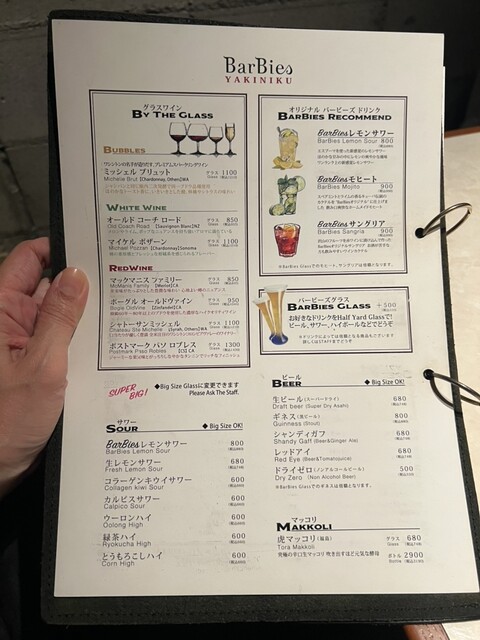 BarBies
YAKINIKU
グラスワイン
BY THE GLASS
BUBBLES
ミッシェル ブリュット グラス 1100
Michelle Brut [Chardonnay, Others]WA
WHITE WINE
オールド コーチ ロード グラス 850
Old Coach Road [Sauvignon Blanc]NZ
マイケル ポザーン グラス 1100
Michael Pozzan [Chardonnay]Sonoma
REDWINE
マックマニス ファミリー グラス 850
McManis Family [Merlot]CA
ボーグル オールドヴァイン グラス 950
Bogle OldVine [Zinfandel]CA
シャトー サンミッシェル グラス 1100
Chateau Ste Michelle [Syrah, Others]WA
ポストマーク パソ ロブレス グラス 1300
Postmark Paso Robles [CS] CA
オリジナル バービーズ ドリンク
BARBIES RECOMMEND
BarBiesレモンサワー
BarBies Lemon Sour 800
BarBiesモヒート
BarBies Mojito 900
BarBiesサングリア
BarBies Sangria 900
バービーズグラス
BARBIES GLASS +500
お好きなドリンクをHalf Yard Glassで!
ビール、サワー、ハイボールなどでどうぞ
SUPER BIG!
◆Big Size Glassに変更できます
Please Ask The Staff.
サワー
SOUR ◆ Big Size OK!
BarBiesレモンサワー 800
BarBies Lemon Sour
生レモンサワー 680
Fresh Lemon Sour
コラーゲンキウイサワー 600
Collagen kiwi Sour
カルピスサワー 600
Calpico Sour
ウーロンハイ 600
Oolong High
緑茶ハイ 600
Ryokucha High
とうもろこしハイ 600
Corn High
ビール
BEER ◆ Big Size OK!
生ビール (スーパードライ) 680
Draft beer (Super Dry Asahi)
ギネス (黒ビール) 800
Guinness (Stout)
シャンディガフ 680
Shandy Gaff (Beer&Ginger Ale)
レッドアイ 680
Red Eye (Beer&Tomatojuice)
ドライゼロ (ノンアルコールビール) 500
Dry Zero (Non Alcohol Beer)
※BarBies Glassでのギネスは除きとなります。
マッコリ
MAKKOLI
虎マッコリ (福島) グラス 680
Tora Makkoli Glass
ボトル 2900
Bottle